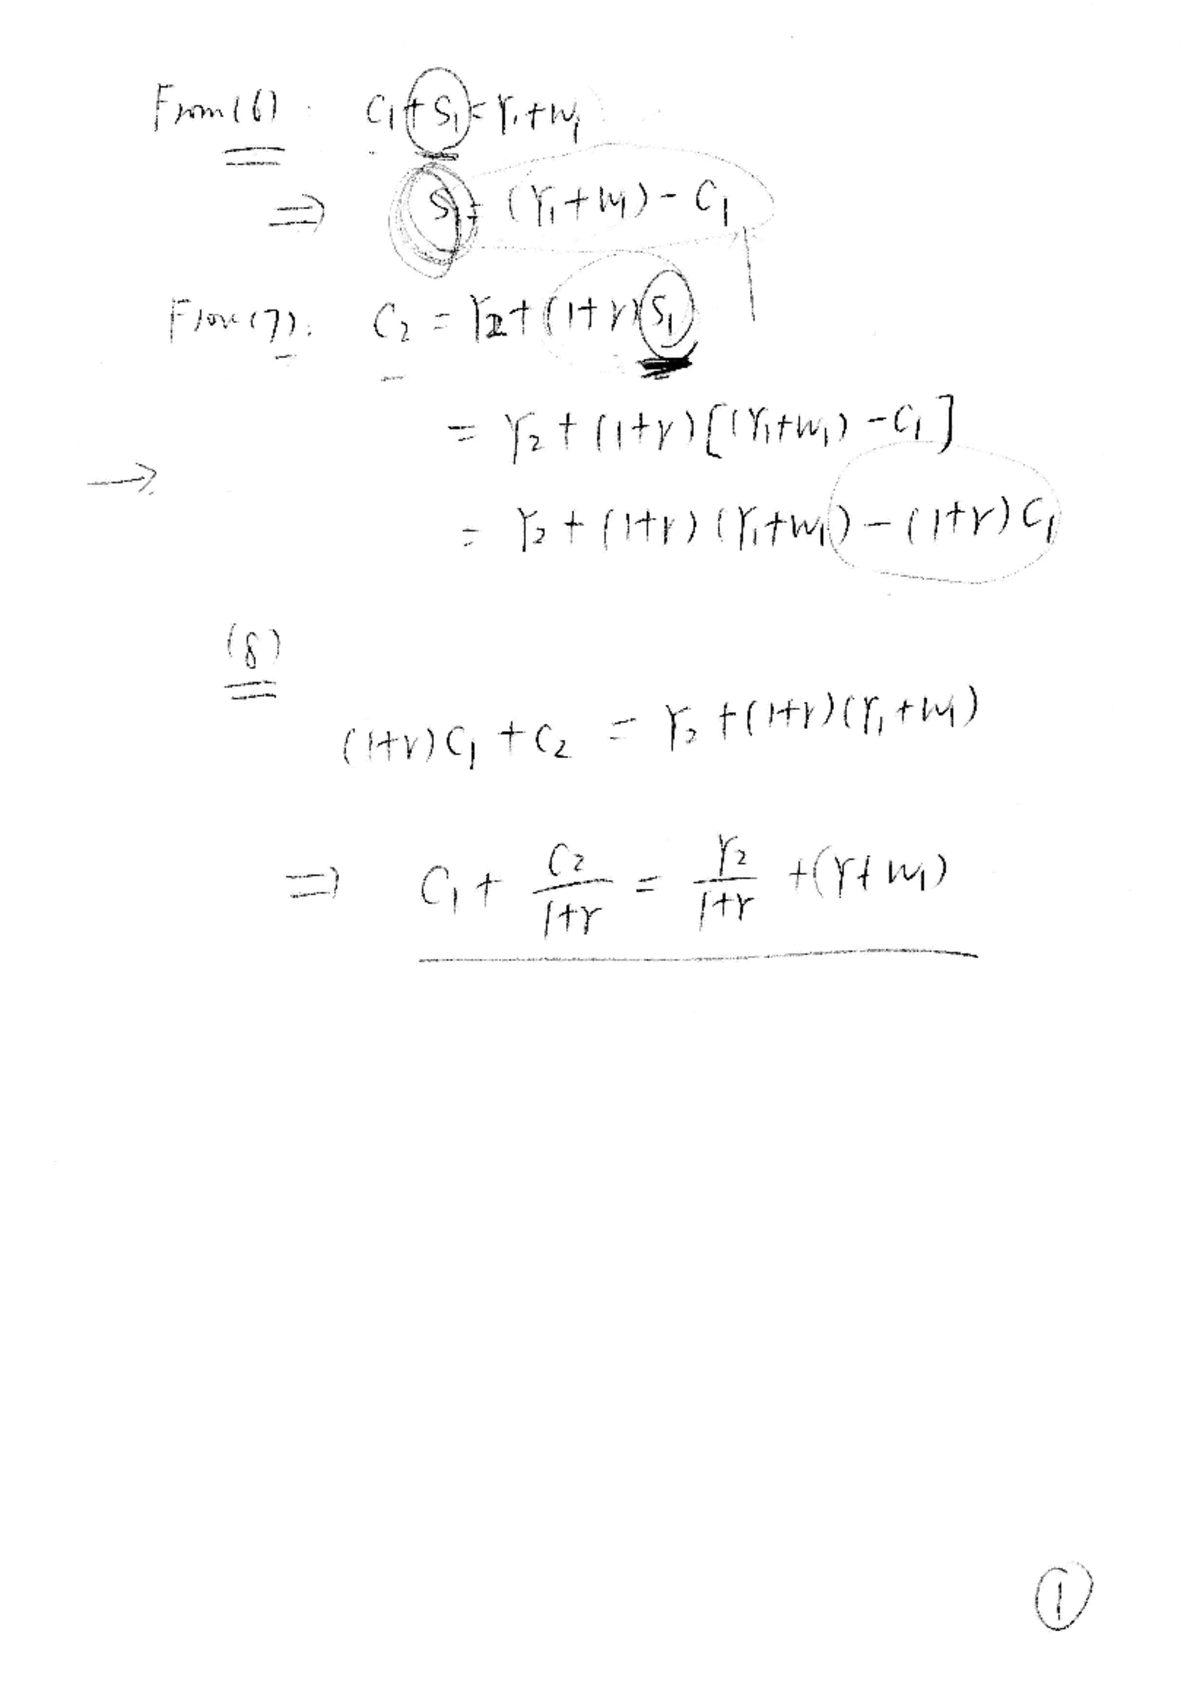 From (6) : C₁ + S₁ = Y₁ + W₁
⇒ S₁ = (Y₁ + W₁) - C₁
From (7) : C₂ = Y₂ + (1+r) S₁
= Y₂ + (1+r) [(Y₁+W₁) - C₁]
→
= Y₂ + (1+r) (Y₁+W₁) - (1+r) C₁
(8)
(1+r) C₁ + C₂ = Y₂ + (1+r) (Y₁ + W₁)
⇒ C₁ + C₂/1+r = Y₂/1+r + (Y + W₁)
1